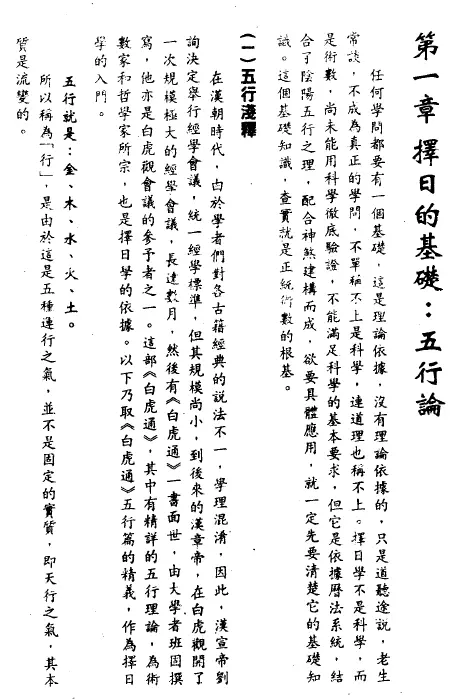 第一章 擇日的基礎：五行論
任何學問都要有一個基礎，這是理論依據，沒有理論依據的，只是道聽途說，老生
常談，不成為真正的學問，不單稱不上是科學，連道理也稱不上。擇日學不是科學，而
是術數，尚未能用科學徹底驗證，不能滿足科學的基本要求，但它是依據曆法系統，結
合了陰陽五行之理，配合神煞建構而成，欲要具體應用，就一定先要清楚它的基礎知
識。這個基礎知識，查實就是正統術數的根基。
(一)五行淺釋
在漢朝時代，由於學者們對各古籍經典的說法不一，學理混淆，因此，漢宣帝劉
詢決定舉行經學會議，統一經學標準，但其規模尚小，到後來的漢章帝，在白虎觀開了
一次規模極大的經學會議，長達數月，然後有《白虎通》一書面世，由大學者班固撰
寫，他亦是白虎觀會議的參予者之一。這部《白虎通》，其中有精詳的五行理論，為術
數家和哲學家所宗，也是擇日學的依據。以下乃取《白虎通》五行篇的精義，作為擇日
學的入門。
五行就是：金、木、水、火、土。
所以稱為「行」，是由於這是五種運行之氣，並不是固定的實質，即天行之氣，其本
質是流變的。